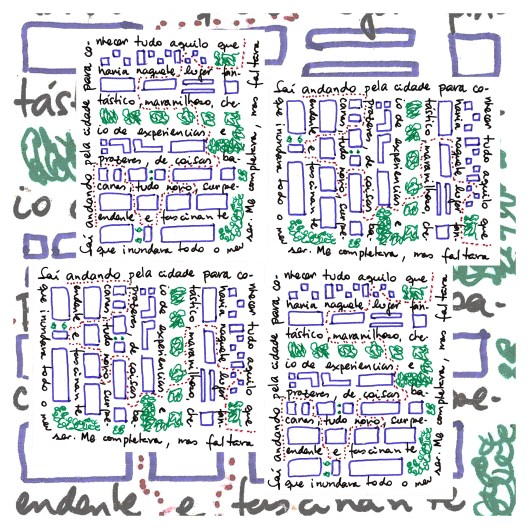 tás
io
c
endente e fascinante
a-
pe-
Saí andando pela cidade para co-
nhecer tudo aquilo que
havia naquele lugar fan-
tástico, maravilhoso, che
io de experiencias e
prazeres, de coisas ba
canas, tudo novo, surpe-
endente e fascinante
que inundava todo o meu
ser. Me completava, mas faltava
Saí andando pela cidade para co-
nhecer tudo aquilo que
havia naquele lugar fan-
tástico, maravilhoso, che
io de experiencias e
prazeres, de coisas ba
canas, tudo novo, surpe-
endente e fascinante
que inundava todo o meu
ser. Me completava, mas faltava
Saí andando pela cidade para co-
nhecer tudo aquilo que
havia naquele lugar fan-
tástico, maravilhoso, che
io de experiencias e
prazeres, de coisas ba
canas, tudo novo, surpe-
endente e fascinante
que inundava todo o meu
ser. Me completava, mas faltava
Saí andando pela cidade para co-
nhecer tudo aquilo que
havia naquele lugar fan-
tástico, maravilhoso, che
io de experiencias e
prazeres, de coisas ba
canas, tudo novo, surpe-
endente e fascinante
que inundava todo o meu
ser. Me completava, mas faltava